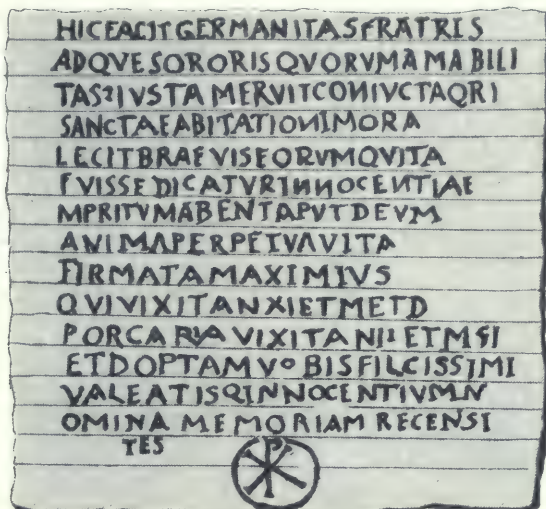 HICEACITGERMANITASFRATRIS
ADQVESORORISQVORVMAMABILI
TASƧIVSTAMERVITCONIVCTAQRI
SANCTAEABITATIONIMORA
LECITBRAEVISEORVMQVITA
FVISSEDICATVRINNOCENTIAE
MPRITVMABENTAPVTDEVM
ANIMAPERPETVAVITA
FIRMATAMAXIMIVS
QVIVIXITANXIETMETD
PORCARIAVIXITANIIETMSI
ETDOPTAMVOBISFILCISSIMI
VALEATISQINNOCENTIVMN
OMINA MEMORIAM RECENSI
TES